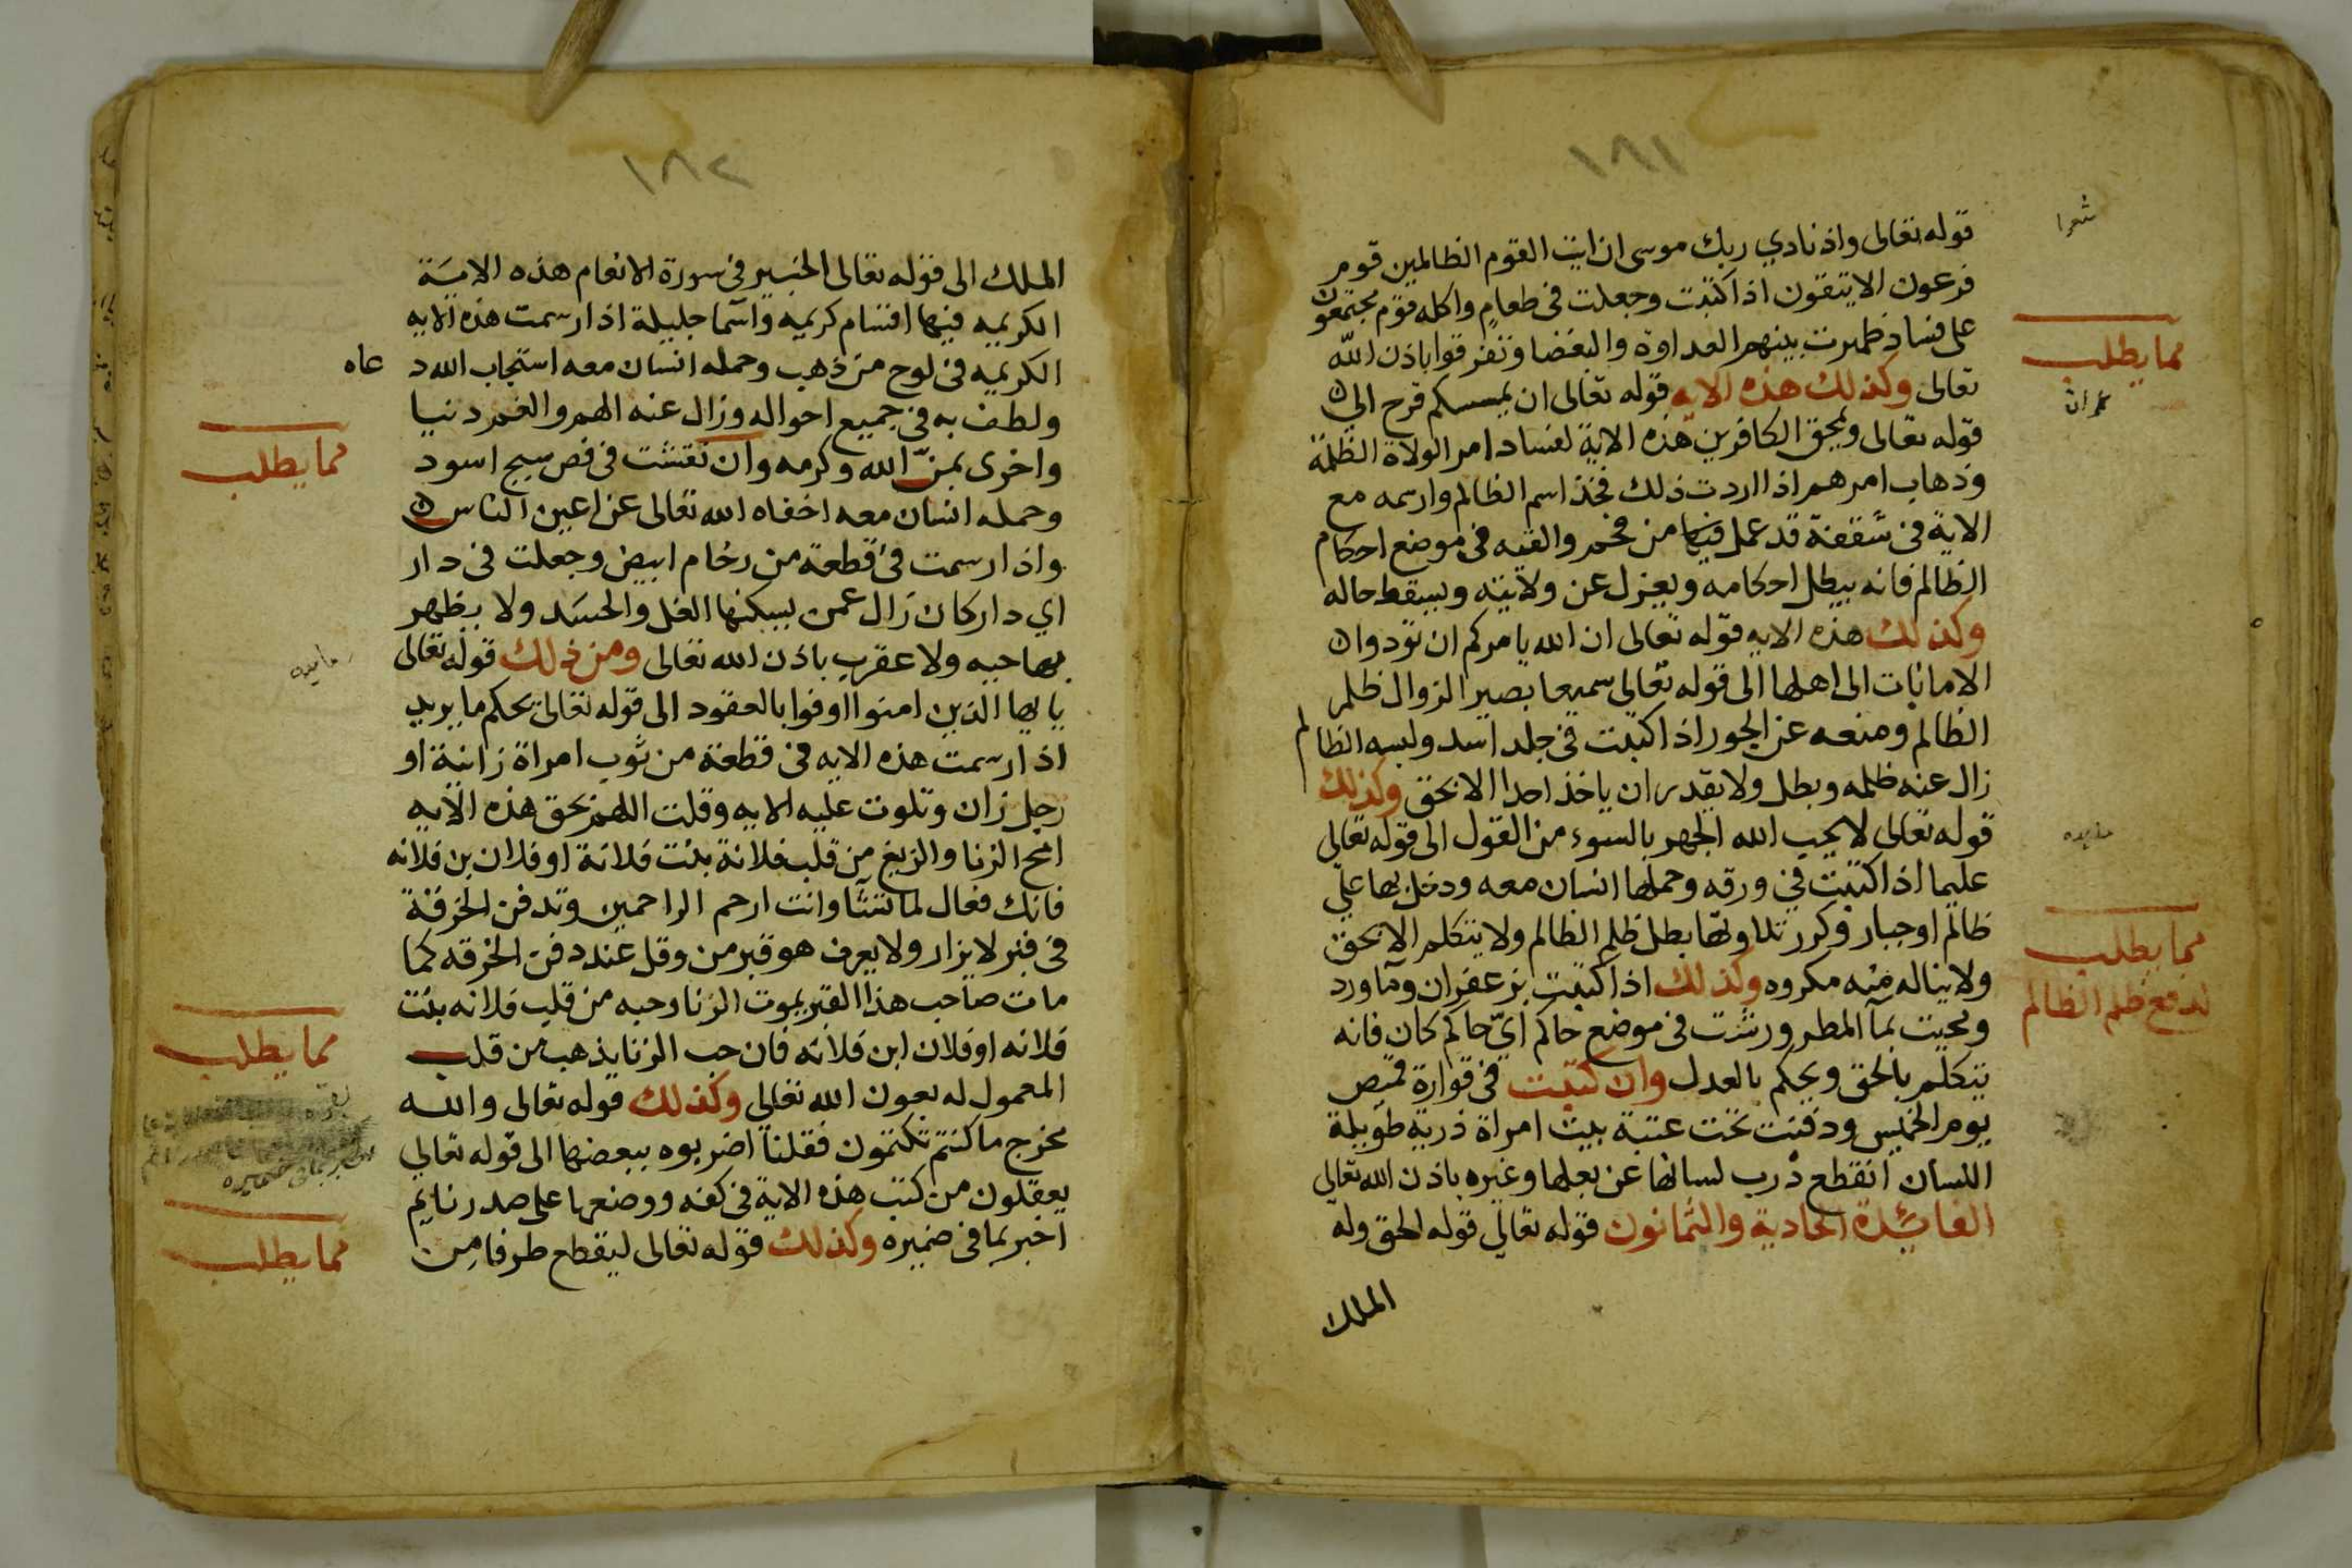 ١٨١
شعرا
قوله تعالى واذ نادي ربك موسى ان ايت القوم الظالمين قوم
فرعون الا يتقون اذا كتبت وجعلت فى طعام واكله قوم مجتمعون
على فساد ظهرت بينهم العداوة والبغضا وتفرقوا باذن الله
مما يطلب
تعالى وكذلك هذه الايه قوله تعالى ان يمسسكم قرح الى
عمران
قوله تعالى ويمحق الكافرين هذه الاية لفساد امر الولاة الظلمة
وذهاب امرهم اذا اردت ذلك فخذ اسم الظالم وارسمه مع
الاية فى شقفة قد عمل فيها من فخم والقيه فى موضع احكام
الظالم فانه يبطل احكامه ويعزل عن ولايته ويسقط حاله
وكذلك هذه الايه قوله تعالى ان الله يامركم ان تودوا
الامانات الى اهلها الى قوله تعالى سميعا بصير الزوال ظلم
الظالم ومنعه عن الجور اذا كتبت فى جلد اسد ولبسه الظالم
زال عنه ظلمه وبطل ولا يقدر ان ياخذ احدا الا بحق وكذلك
قوله تعالى لا يحب الله الجهر بالسوء من القول الى قوله تعالى
عليما اذا كتبت فى ورقه وحملها انسان معه ودخل بها على
ظالم او جبار وكرر تلاوتها بطل ظلم الظالم ولا يتكلم الا بحق
مما يطلب
لدفع ظلم الظالم
ولا يناله منه مكروه وكذلك اذا كتبت بزعفران وما ورد
ومحيت بمآ المطر ورشت فى موضع حاكم اىّ حاكم كان فانه
يتكلم بالحق ويحكم بالعدل وان كتبت فى قوارة قميص
يوم الخميس ودفنت تحت عتبة بيت امراة ذربة طويلة
اللسان انقطع ذرب لسانها عن بعلها وغيره باذن الله تعالى
الفائدة الحادية والثمانون قوله تعالى قوله الحق وله
الملك
١٨٢
الملك الى قوله تعالى الخبير فى سورة الانعام هذه الاية
الكريمه فيها اقسام كريمه واسما جليلة اذا رسمت هذه الايه
الكريمه فى لوح من ذهب وحمله انسان معه استجاب الله دعاه
ولطف به فى جميع احواله وزال عنه الهم والغم دنيا
مما يطلب
واخرى بمنّ الله وكرمه وان نقشت فى فص سبج اسود
وحمله انسان معه اخفاه الله تعالى عن اعين الناس
واذا رسمت فى قطعة من رخام ابيض وجعلت فى دار
اي دار كان زال عمن يسكنها الغل والحسد ولا يظهر
بها حيه ولا عقرب باذن الله تعالى ومن ذلك قوله تعالى
يايها الذين امنوا اوفوا بالعقود الى قوله تعالى يحكم ما يريد
اذا رسمت هذه الايه فى قطعة من ثوب امراة زانية او
رجل زان وتلوت عليه الايه وقلت اللهم بحق هذه الآيه
امح الزنا والزيغ من قلب فلانة بنت فلانة او فلان بن فلانه
فانك فعال لما تشآ وانت ارحم الراحمين وتدفن الخرقة
فى قبر لا يزار ولا يعرف هو قبر من وقل عند دفن الخرقه كما
مات صاحب هذا القبر يموت الزنا وحبه من قلب فلانه بنت
مما يطلب
فلانه او فلان ابن فلانه فان حب الزنا يذهب من قلب
المعمول له بعون الله تعالى وكذلك قوله تعالى والله
مخرج ما كنتم تكتمون فقلنا اضربوه ببعضها الى قوله تعالى
يعقلون من كتب هذه الاية فى كفه ووضعها على صدر نايم
مما يطلب
اخبر بما فى ضميره وكذلك قوله تعالى ليقطع طرفا من